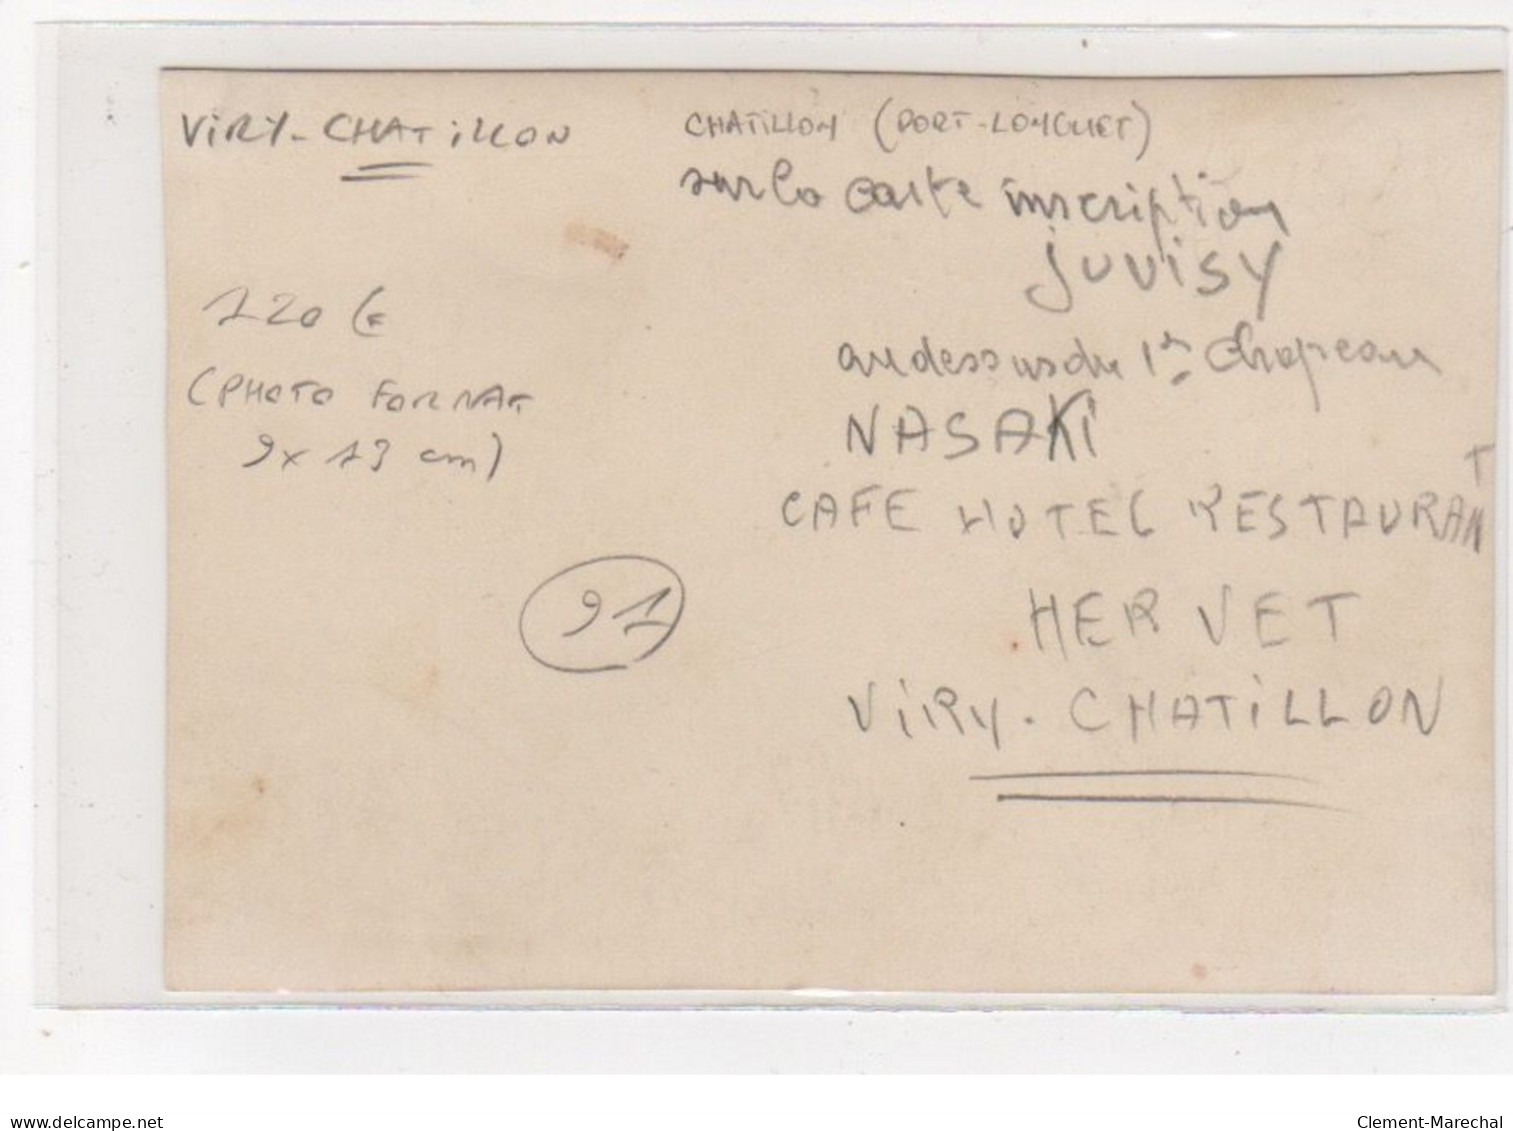 VIRY-CHATILLON
120 €
(PHOTO FORMAT
9x13 cm)
91
CHATILLON (PORT-LONGUET)
sur la carte inscription
JUVISY
au dessus du 1er Chapeau
NASAKI
CAFE HOTEL RESTAURANT
HERVET
VIRY-CHATILLON
delcampe.net
Clement-Marechal